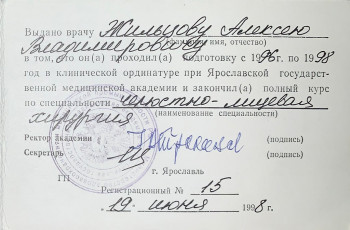 Выдано врачу Жильцову Алексею
Владимировичу
(фамилия, имя, отчество)
в том, что он(а) проходил(а) подготовку с 1996г. по 1998
год в клинической ординатуре при Ярославской государст-
венной медицинской академии и закончил(а) полный курс
по специальности челюстно-лицевая
хирургия (наименование специальности)
Ректор Академии (подпись)
Секретарь (подпись)
ГП г. Ярославль
Регистрационный № 15
19 июня 1998г.